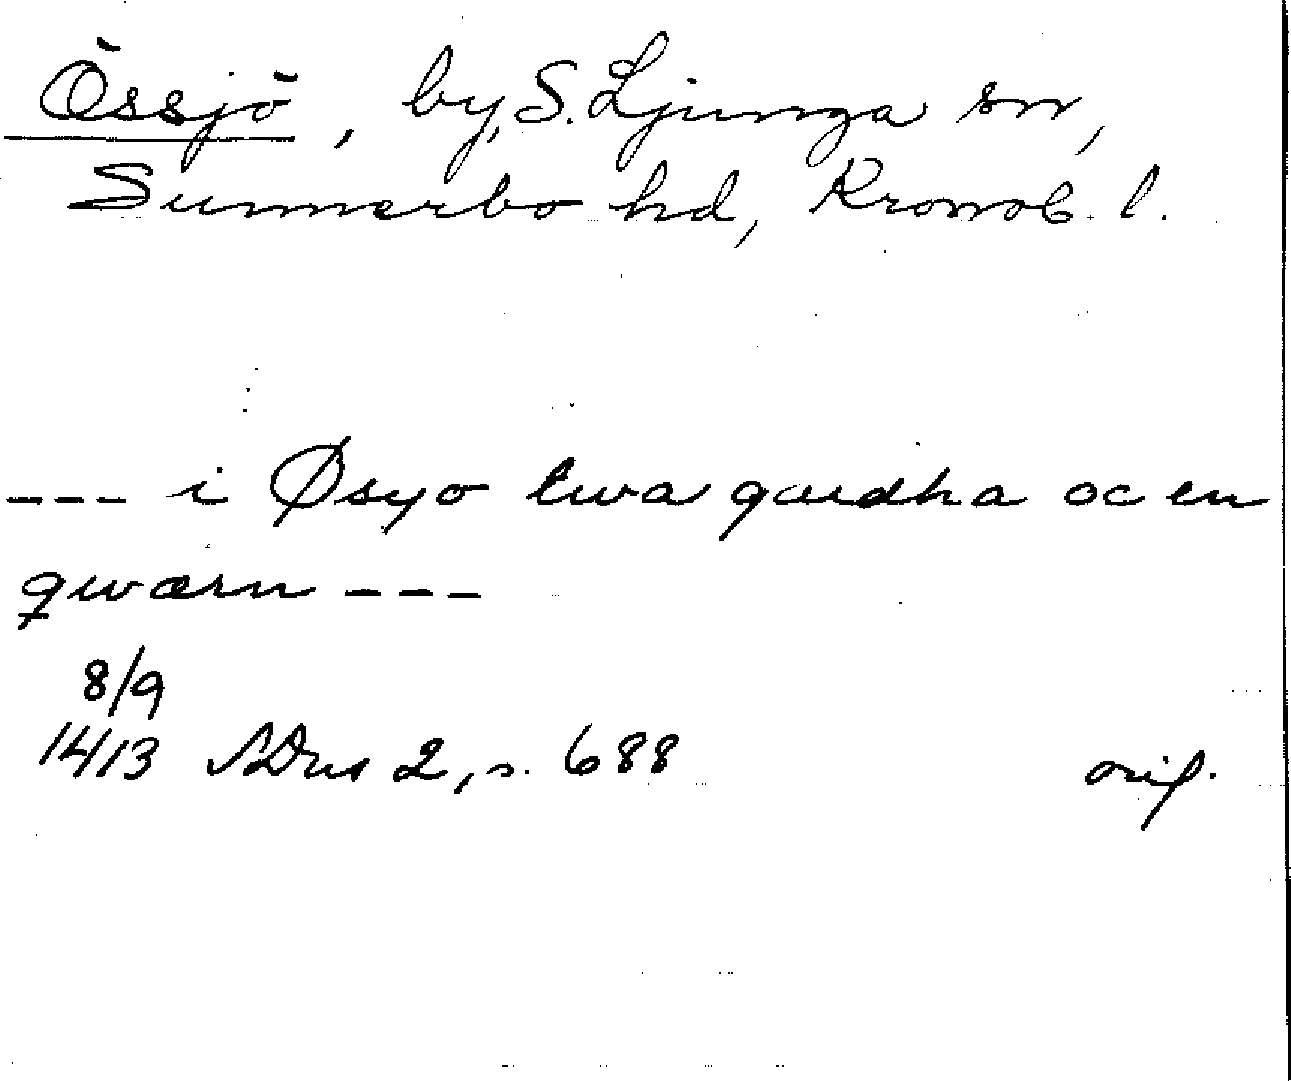 Össjö, by, S. Ljunga sn,
Sunnerbo hd, Kronob. l.
--- i Øsyo twa gardha oc en
qwærn ---
8/9
1413 SDns 2, s. 688 orig.